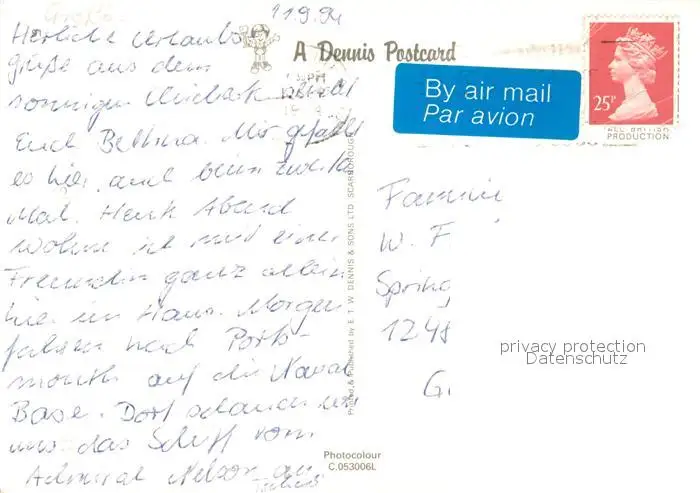 11.9.94
Herzliche Urlaubs-
grüße aus dem
sonnigen
Euch Bettina. Mir gefällt
es hier auch beim zweiten
Mal. Heute Abend
wohne ich mit einer
Freundin ganz allein
hier im Haus. Morgen
fahren nach Ports-
mouth auf die Naval
Base. Dort schauen wir
uns das Schiff vom
Admiral Nelson an
Tschüß
A Dennis Postcard
By air mail
Par avion
25P
ALL BRITISH
PRODUCTION
Printed & Published by E. T. W. DENNIS & SONS LTD SCARBOROUGH
Famili
W. F
Spring
1248
G.
privacy protection
Datenschutz
Photocolour
C.053006L